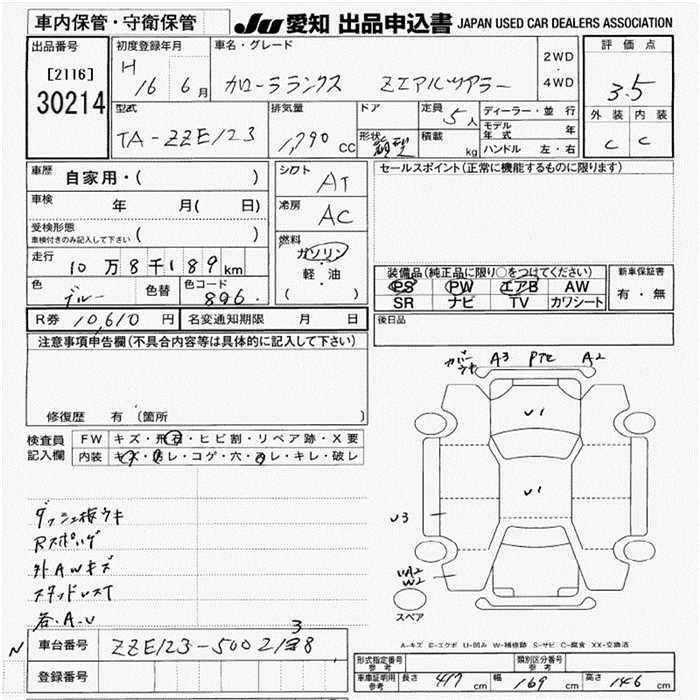 車内保管・守衛保管
JU 愛知 出品申込書 JAPAN USED CAR DEALERS ASSOCIATION
出品番号
[2116]
30214
初度登録年月
H 16 6月
車名・グレード
カローラランクス ZエアルツアラーUnable
2WD
・
4WD
評価点
3.5
外装 内装
C C
型式
TA-ZZE123
排気量
1,790 CC
ドア
形状
定員
5人
積載
kg
ディーラー・並行
モデル年式 年
ハンドル 左・右
車歴
自家用・( )
車検 年 月( 日)
受検形態
車検付きのみ記入して下さい ( )
走行 10万8千189km
色 ブルー 色替
色コード 8Q6
R券 10,610 円
名変通知期限 月 日
シフト AT
冷房 AC
燃料
ガソリン
・
軽・油
( )
セールスポイント(正常に機能するものに限ります)
装備品(純正品に限り○をつけてください)
PS PW エアB AW
SR ナビ TV カワシート
新車保証書
有・無
後日品
注意事項申告欄(不具合内容等は具体的に記入して下さい)
修復歴 有 (箇所
検査員
記入欄
FW キズ・飛石・ヒビ割・リペア跡・X要
内装 キズ・汚レ・コゲ・穴・凹・キレ・破レ
ダッシュ板ウキ
Rスポイレゲ
外AWキズ
スタッドレスT
各A.U
カバーウキ A3 PTC A2
U1
U1
U3
UA2
W2
スペア
A-キズ E-エクボ U-凹み W-補修跡 S-サビ C-腐食 XX-交換済
N 車台番号 ZZE123-5002138
3
登録番号
形式指定番号
参考
類別区分番号
参考
車庫証明用
参考
長さ 417 cm 幅 169 cm 高さ 146 cm